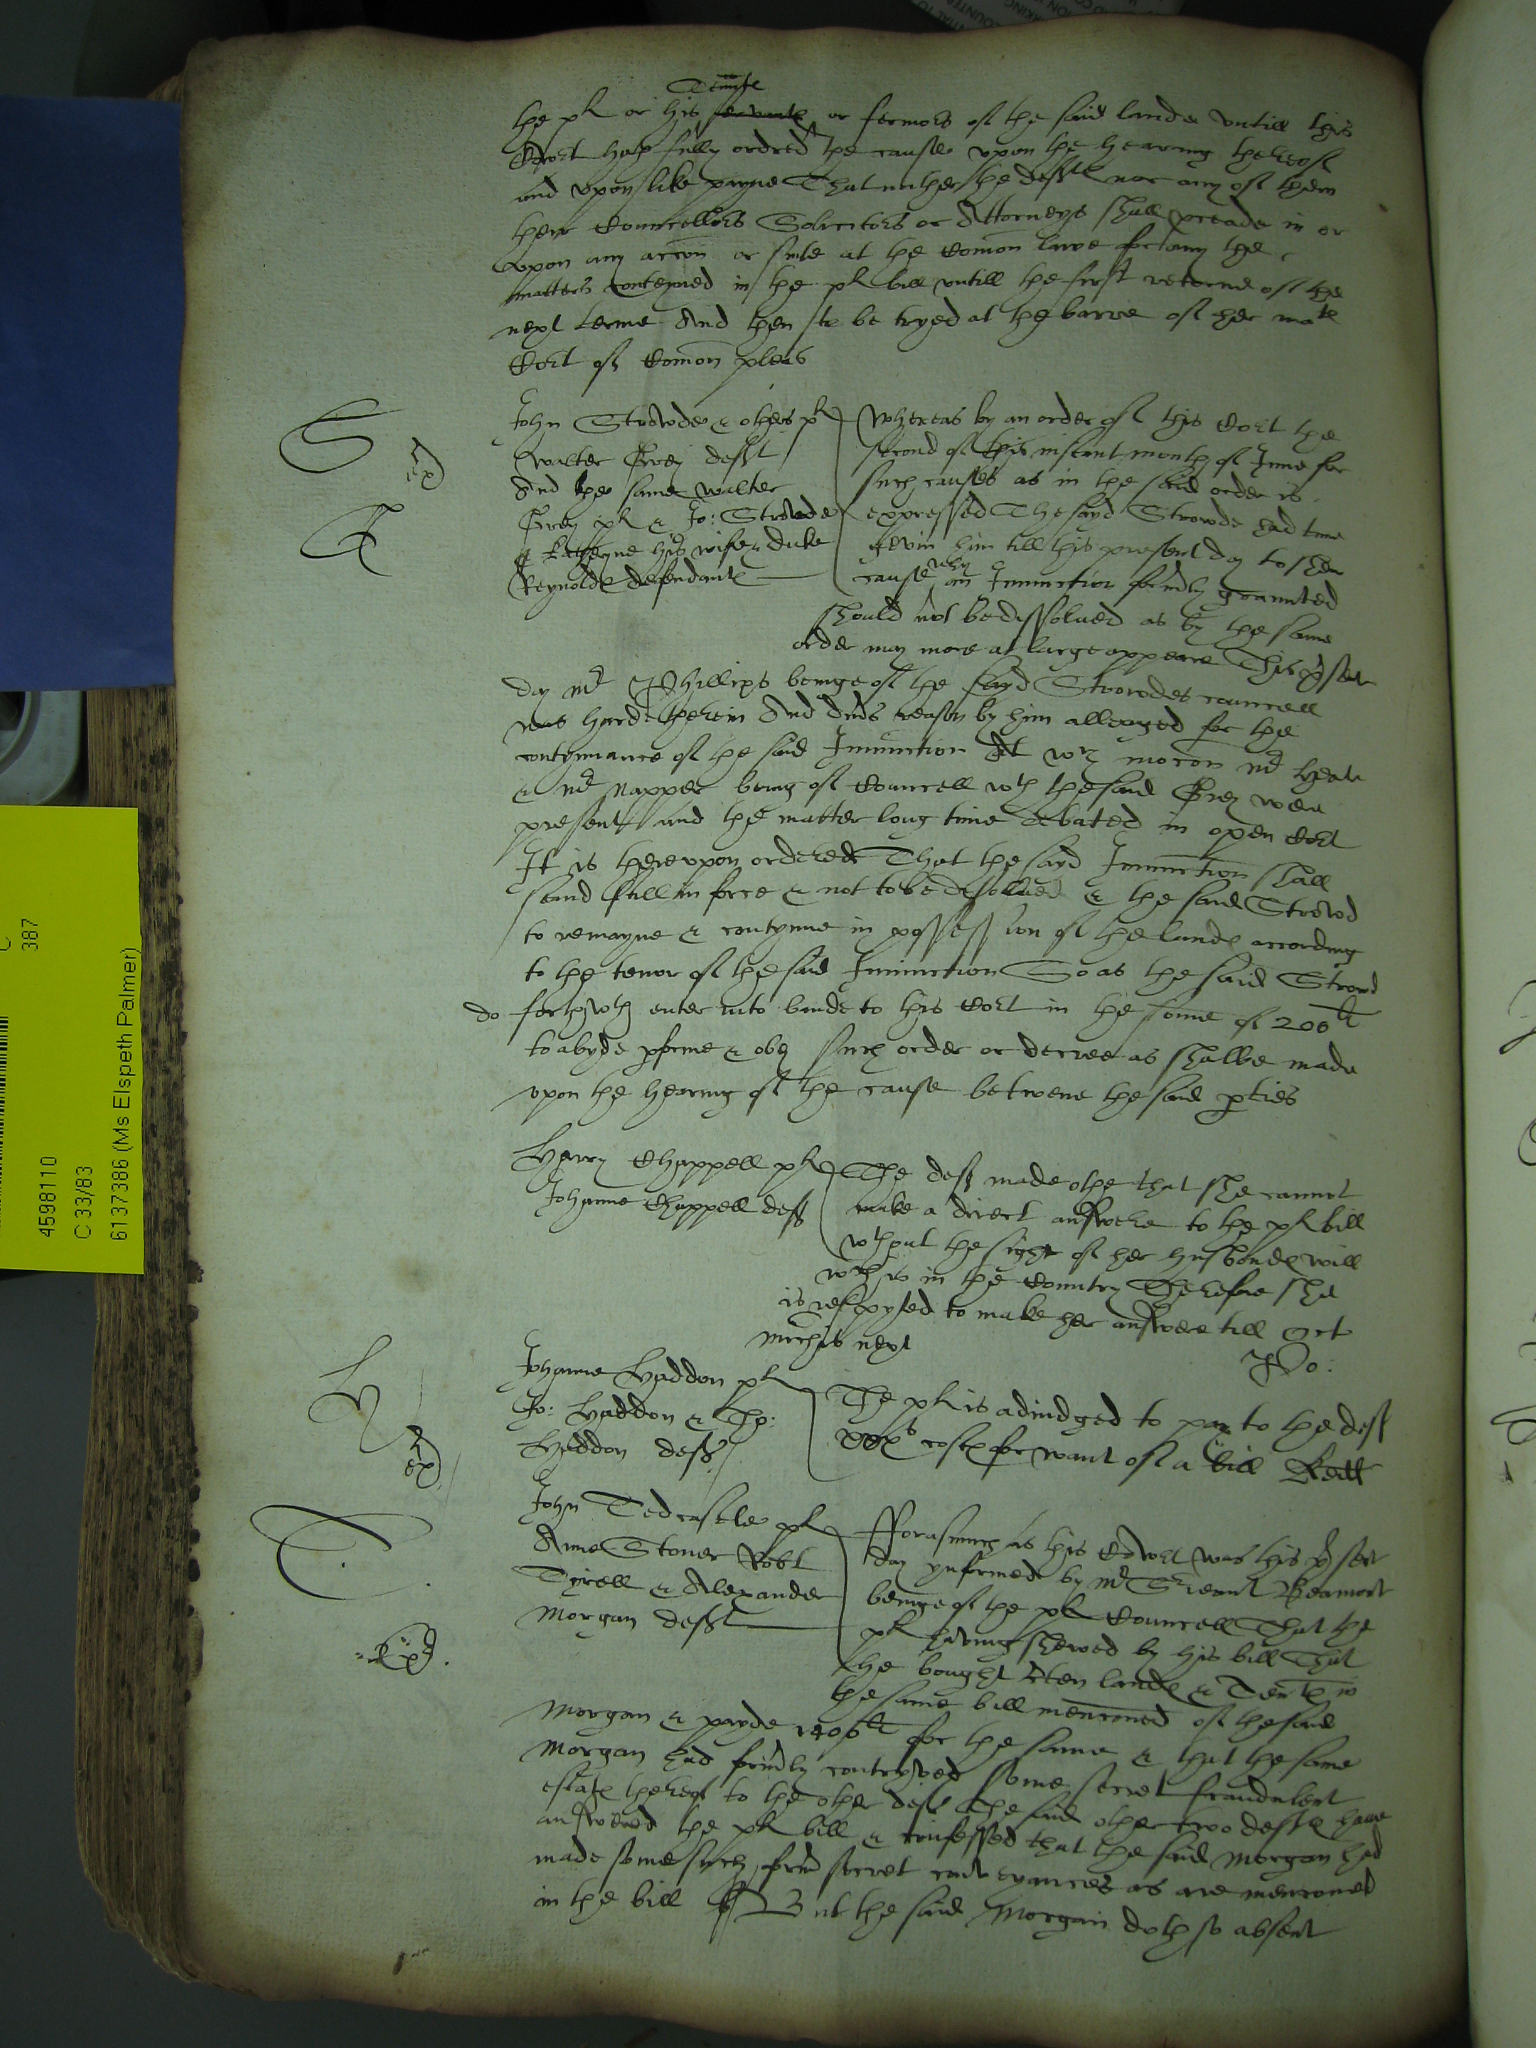 Tenntℯ
the pl or his servantℯ or fermors of the said landes untill this
Court hath fully ordred the cause upon the hearing thereof
and upon like payne That nither the deftℯ nor any of them
their Councellors Solicitors or Attorneys shall proceade in or
upon any accion or suite at the comon lawe for any the
matters conteyned in the pl bill untill the first retorne of the
next terme And then to be tryed at the barre of her matℯ
Cort of Comon pleas
S
G
exr
John Strowde & others pl
Walter Grey deft
And the same Walter
Grey pl & Jo: Strowde
& Katheryne his wife & Duke
Reynoldℯ defendantℯ
Whereas by an order of this Cort the
second of this instant month of June for
such causes as in the said order is
expressed The sayd Strowde had time
gevin him till this present day to shew
cause why an Iniunction formerly graunted
should not be dissolved as by the same
order may more at large appeare This present
day Mr Phillips beinge of the sayd Strowdes councell
was hard therein And divers reason by him alleaged for the
contynuance of the said Iniunction At wch mocion Mr Hele
& Mr Napper being of Councell wth the said Grey were
present and the matter long time debated in open Cort
It is hereupon ordered That the sayd Iniunction shall
stand still in force & not to be dissolued & the said Strowd
to remayne & contynue in possession of the landℯ according
to the tenor of the said Iniunction So as the said Strowd
do forthwth enter into bande to this Cort in the some of 200li
to abyde pforme & obey such order or decree as shalbe made
upon the hearing of the cause betwene the said pties
Harry Chappell pl
Johanne Chappell def
The def made othe that she cannot
make a direct answere to the pl bill
wthout the sight of her husbondℯ will
wch is in the Countrey Therefore she
is respyted to make her answere till Oct
Michis next
Po:
H
exr
Johanne Haddon pl
Jo: Haddon & Tho:
Haddon deftℯ
The pl is adiudged to pay to the def
xxs costℯ for want of a bill
T
exr
John Tedcastle pl
Anne Stoner Robt
Tyrell & Alexander
Morgan deftℯ
Fforasmuch as this Court was this psent
day ynformed by Mr Sreant Beamont
beinge of the pl Councell That the
pl having shewed by his bill That
he bought cten landℯ & Tentℯ in
the same bill mencioned of the said
Morgan & payde 1400li for the same & that the same
Morgan had formerly contryved some secret fraudulent
estatℯ thereof to the other deftℯ The said other two deftℯ have
answered the pl bill & confessed that the said Morgan had
made some such form secret conveyances as are mencioned
in the bill But the said Morgan doth so absent
387
4598110
C 33/83
6137386 (Ms Elspeth Palmer)